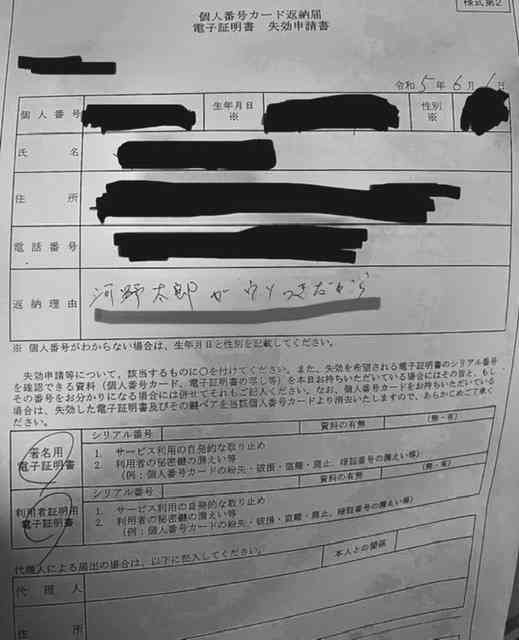 様式第2
個人番号カード返納届
電子証明書 失効申請書
令和5年6月 日
個人番号
生年月日
※
性別
※
氏名
住所
電話番号
返納理由
河野太郎がウソつきだから
※ 個人番号がわからない場合は、生年月日と性別を記載してください。
失効申請等について、該当するものに○を付けてください。また、失効を希望される電子証明書のシリアル番号
を確認できる資料（個人番号カード、電子証明書の写し等）を本日お持ちいただいている場合にはその旨と、もし
その番号をお分かりになる場合には併せてそれもご記入ください。なお、個人番号カードをお持ちいただいている
場合は、失効した電子証明書及びその鍵ペアを当該個人番号カードより消去いたしますので、あらかじめご了承く
ださい。
署名用
電子証明書
シリアル番号
資料の有無
（無・有）
1. サービス利用の自発的な取り止め
2. 利用者の秘密鍵の漏えい等
（例：個人番号カードの紛失・破損・盗難・廃止、暗証番号の漏えい等）
利用者証明用
電子証明書
シリアル番号
資料の有無
（無・有）
1. サービス利用の自発的な取り止め
2. 利用者の秘密鍵の漏えい等
（例：個人番号カードの紛失・破損・盗難・廃止、暗証番号の漏えい等）
代理人による届出の場合は、以下に記入してください。
代理人
本人との関係
住所